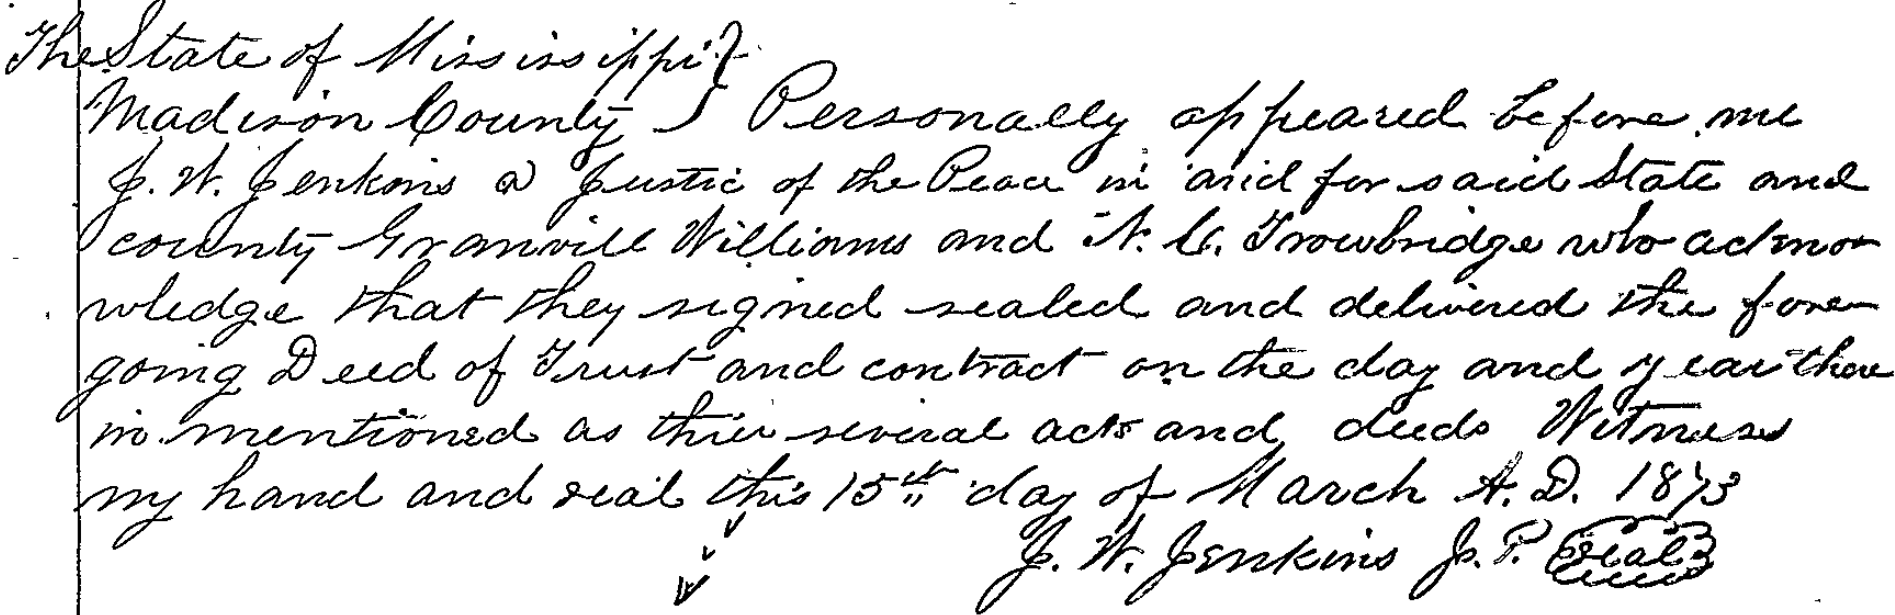 The State of Mississippi }
Madison County } Personally appeared before me
J. W. Jenkins a Justic of the Peace in and for said State and
county Granvill Williams and N. C. Trowbridge who ackno-
wledge that they signed sealed and delivered the fore-
going Deed of Trust and contract on the day and year there
in mentioned as thier several acts and deeds Witness
my hand and seal this 15th day of March A. D. 1873
J. W. Jenkins J. P. Seal